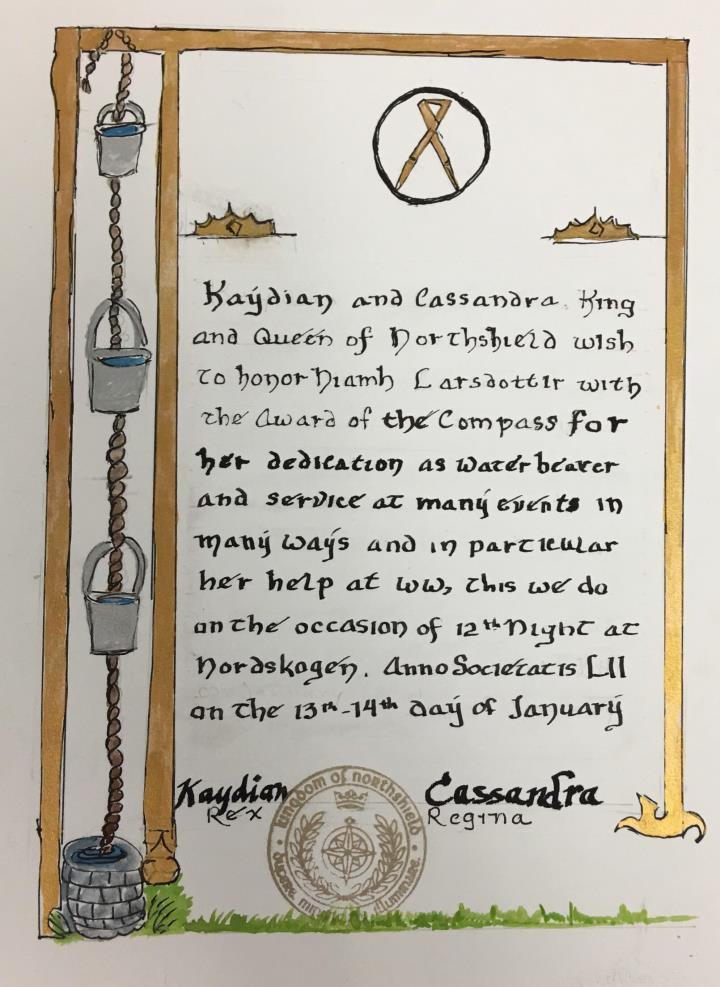 Kaydian and Cassandra King
and Queen of Northshield wish
to honor Niamh Larsdottir with
the Award of the Compass for
her dedication as waterbearer
and service at many events in
many ways and in particular
her help at WW, this we do
on the occasion of 12th Night at
Nordskogen. Anno Societatis LII
on the 13th-14th day of January
Kaydian
Rex
Cassandra
Regina
kingdom of northshield
illuminare